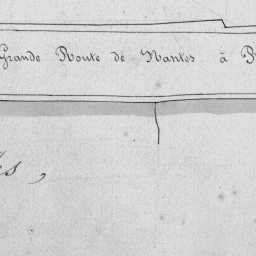 Grande Route de Nantes à